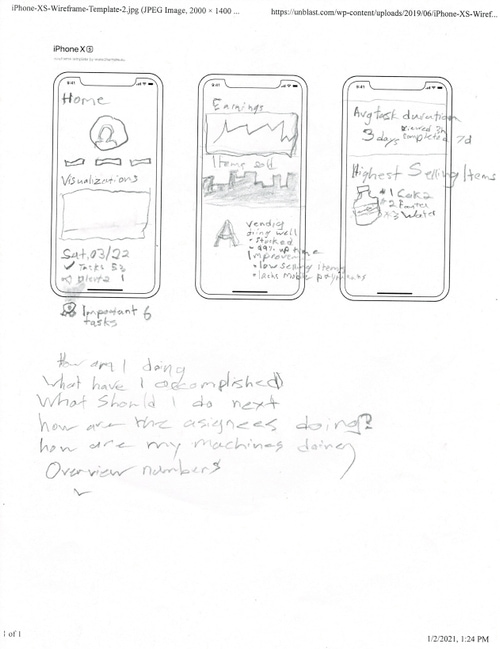 iPhone-XS-Wireframe-Template-2.jpg (JPEG Image, 2000 × 1400 ...
https://unblast.com/wp-content/uploads/2019/06/iPhone-XS-Wiref...
iPhone X S
9:41
Home
Visualizations
Sat, 03/22
✓ Tasks 53
Alerts 1
Important 6
tasks
9:41
Earnings
Items sold
A
vending
doing well
• Stocked
• 99% up time
Improvem
• low selling items
• lacks mobile payments
9:41
Avg task duration
3 days
completed 7d
Highest Selling Items
#1 Coke
#2
#3 Water
How am I doing
What have I accomplished
What Should I do next
how are the asignees doing?
how are my machines doing
Overview numbers
1 of 1
1/2/2021, 1:24 PM